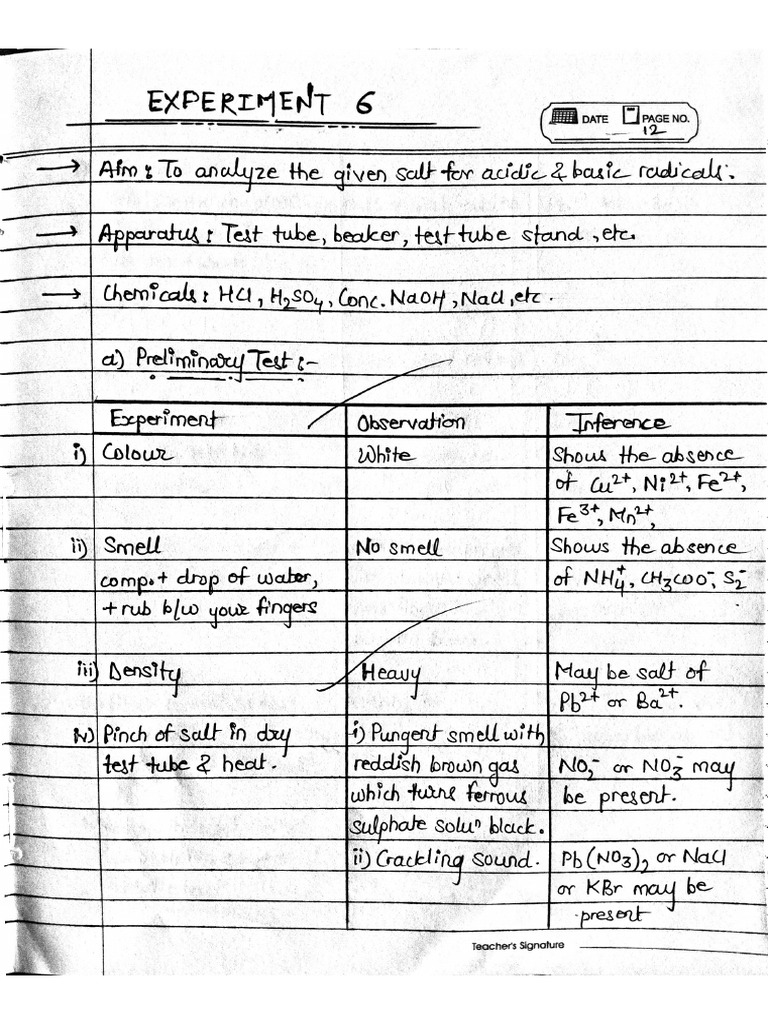 EXPERIMENT 6
DATE PAGE NO.
12
→ Aim : To analyze the given salt for acidic & basic radicals.
→ Apparatus : Test tube, beaker, test tube stand, etc.
→ Chemicals : HCl, H₂SO₄, Conc. NaOH, NaCl, etc.
a) Preliminary Test :-
Experiment Observation Inference
i) Colour White Shows the absence
of Cu²⁺, Ni²⁺, Fe²⁺,
Fe³⁺, Mn²⁺,
ii) Smell No smell Shows the absence
comp. + drop of water, of NH₄⁺, CH₃COO⁻, S₂⁻
+ rub b/w your fingers
iii) Density Heavy May be salt of
Pb²⁺ or Ba²⁺.
iv) Pinch of salt in dry i) Pungent smell with
test tube & heat. reddish brown gas NO₂⁻ or NO₃⁻ may
which turns ferrous be present.
sulphate soluⁿ black.
ii) Crackling sound. Pb(NO₃)₂ or NaCl
or KBr may be
present
Teacher's Signature